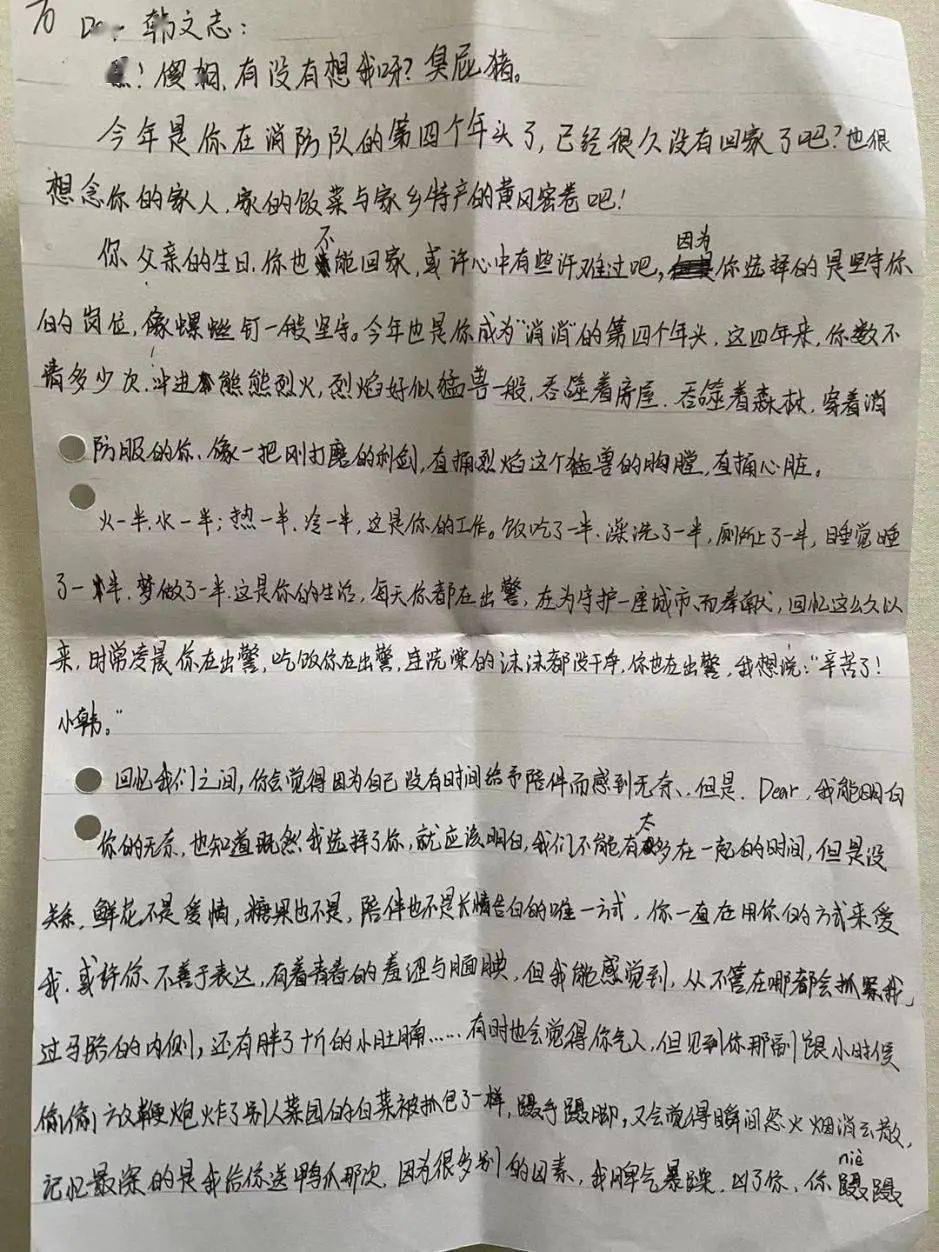 韩文志：
！傻相，有没有想我呀？臭屁猪。
今年是你在消防队的第四个年头了，已经很久没有回家了吧？也很
想念你的家人，家的饭菜与家乡特产的黄冈密卷吧！
你父亲的生日，你也不能回家，或许心中有些许难过吧，因为你选择的是坚守你
的岗位，像螺丝钉一般坚守。今年也是你成为“消消”的第四个年头，这四年来，你数不
清多少次，冲进熊熊烈火，烈焰好似猛兽一般，吞噬着房屋，吞噬着森林，穿着消
防服的你、像一把刚打磨的利剑，直捅烈焰这个猛兽的胸膛，直捅心脏。
火一半，水一半；热一半，冷一半，这是你的工作。饭吃了一半，澡洗了一半，厕所上了一半，睡觉睡
了一半，梦做了一半，这是你的生活，每天你都在出警，在为守护一座城市而奉献，回忆这么久以
来，时常凌晨你在出警，吃饭你在出警，连洗澡的沫沫都没干净，你也在出警，我想说：“辛苦了！
小韩。”
回忆我们之间，你会觉得因为自己没有时间给予陪伴而感到无奈，但是，Dear，我能明白
你的无奈，也知道既然我选择了你，就应该明白，我们不能有太多在一起的时间，但是没
关系，鲜花不是爱情，糖果也不是，陪伴也不是长情告白的唯一方式，你一直在用你的方式来爱
我，或许你不善于表达，有着青春的羞涩与腼腆，但我能感觉到，从不管在哪都会抓紧我，
过马路的内侧，还有胖了十斤的小肚腩……有时也会觉得你气人，但见到你那副跟小时候
偷偷放鞭炮炸了别人菜园的白菜被抓包了一样，蹑手蹑脚，又会觉得瞬间怒火烟消云散，
记忆最深的是我给你送鸭爪那次，因为很多别的因素，我脾气暴躁，凶了你，你蹑niè蹑